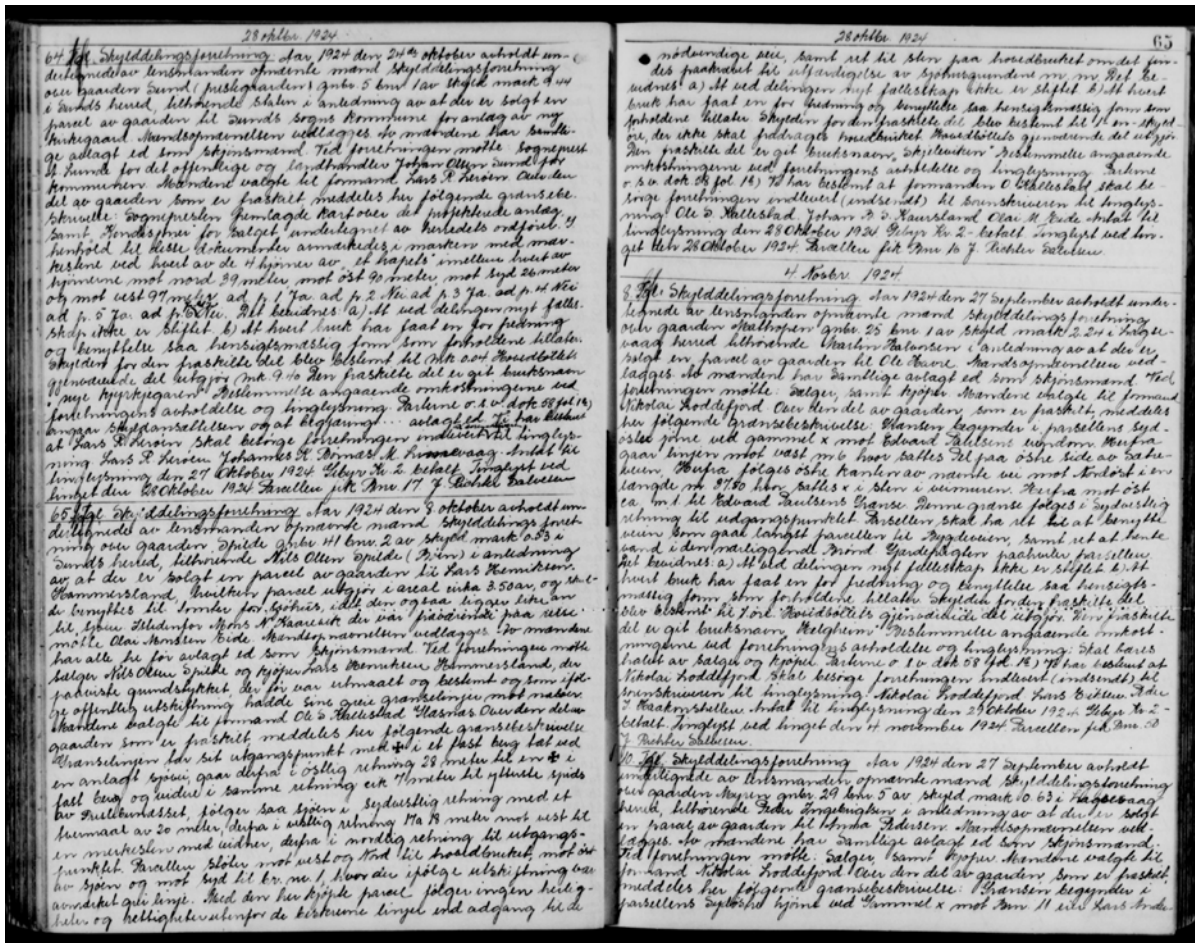 28 oktbr. 1924
64 Tgl. Skylddelingsforretning Aar 1924 den 24de oktober avholdt un-
dertegnede av lensmanden opnævnte mænd skylddelingsforretning
over gaarden Sund (prestegaarden) gnbr. 5 bnr. 1 av skyld mark 9.44
i Sunds herred, tilhørende staten i anledning av at der er solgt en
parcel av gaarden til Sunds sogns kommune for anlæg av ny
kirkegaard. Mændsopnævnelsen vedlægges. Av mændene har samtli-
ge avlagt ed som skjønsmænd. Ved forretningen møtte: sogneprest
Lunde for det offentlige og landhandler Johan Olsen Sund for
kommunen. Mændene valgte til formand Lars R. Lerøen. Over den
del av gaarden som er fraskilt meddeles her følgende grænsebe-
skrivelse: Sognepresten fremlagde kart over det projekterede anlæg
samt "Kondisjoner" for salget undertegnet av herredets ordfører. I
henhold til disse dokumenter avmerkedes i marken med mær-
kestene ved hvert av de 4 hjørner av imellem hvert av
hjørnerne mot nord 39 meter, mot øst 90 meter, mot syd 26 meter
og mot vest 97 meter. ad p. 1 Ja. ad p. 2 Nei ad p. 3 Ja. ad p. 4 Nei
ad p. 5 Ja. ad p. 6 Nei. Det bevidnes: a) At ved delingen nyt fælles-
skap ikke er stiftet. b) At hvert bruk har faat en for fredning
og benyttelse saa hensigtsmæssig form som forholdene tillater.
Skylden for den fraskilte del blev bestemt til mk 0.04 Hovedbøllets
gjenværende del utgjør mk. 9.40 Den fraskilte del er git bruksnavn
"nye kyrkjegaren" Bestemmelse angaaende omkostningerne ved
forretningens avholdelse og tinglysning. Parterne o.s.v. dok 58 fol 18)
angaar skyldansættelsen og at begjæring ... avlagt ed. Vi har bestemt
at Lars R. Lerøen skal besørge forretningen indlevert til tinglys-
ning. Lars R. Lerøen Johannes K. M. Antat til
tinglysning den 27 Oktober 1924 Gebyr Kr 2 betalt. Tinglyst ved
tinget den 28 Oktober 1924 Parcellen fik Bnr 17 J. Richter Salvesen
65 Tgl. Skylddelingsforretning Aar 1924 den 8 oktober avholdt un-
dertegnede av lensmanden opnævnte mænd skylddelings forret-
ning over gaarden Spilde gnbr. 41 bnr. 2 av skyld mark 0.53 i
Sunds herred, tilhørende Nils Olsen Spilde (Bien) i anledning
av at der er solgt en parcel av gaarden til Lars Henriksen
Hammersland, hvilken parcel utgjør i areal cirka 3.50 ar, og skal-
de benyttes til tomter for sjøhus, idet den ogsaa ligger like an
til sjøen. Istedenfor Mons N. Kaarevik der var fraværende paa reise
møtte Olai Monsen Eide. Mændsopnævnelsen vedlægges. Av mændene
har alle før avlagt ed som skjønsmænd. Ved forretningen møtte
sælger Nils Olsen Spilde og kjøper Lars Henriksen Hammersland, der
paaviste grundstykket, der før var utmaalt og bestemt og som iføl-
ge offentlig utskiftning hadde sine greie grænselinjer mot naboer.
Mændene valgte til formand Ole S. Kallestad Glæsnæs Over den del av
gaarden som er fraskilt, meddeles her følgende grænsebeskrivelse
Grænselinjen tar sit utgangspunkt med ✠ i et fast berg tæt ved
en anlagt sjøvei, gaar derfra i østlig retning 28 meter til en ✠ i
fast berg og videre i samme retning cirk 7 meter til ytterste spids
av følger saa sjøen i sydvestlig retning med et
tvermaal av 20 meter, derfra i vestlig retning 17 a 18 meter mot vest til
en merkesten med vidner, derfra i nordlig retning til utgangs-
punktet. Parcellen støter mot vest og Nord til hovedbruket, mot øst
av sjøen og mot syd til br. nr. 1, hvor der ifølge utskiftning var
avmerket grei linje. Med den her kjøpte parcel følger ingen herlig-
heter og rettigheter utenfor de beskrevne linjer end adgang til de
28 oktbr 1924
65
nødvendige veie, samt ret til sten paa hovedbruket om det fin-
des paakrævet til utfærdigelse av sjøhusgrundene m. m. Det be-
vidnes: a) At ved delingen nyt fællesskap ikke er stiftet. b) At hvert
bruk har faat en for fredning og benyttelse saa hensigtsmæssig form som
forholdene tillater. Skylden for den fraskilte del blev bestemt til 1 en skyld-
øre, der ikke skal fradrages hovedbruket. Hovedbøllets gjenværende del utgjør
Den fraskilte del er git bruksnavn "Skjelviken" Bestemmelse angaaende
omkostningerne ved forretningens avholdelse og tinglysning. Parterne
o. s. v. dok 58 fol. 18) Vi har bestemt at formanden O. Kallestad skal be-
sørge forretningen indlevert (indsendt) til sorenskriveren til tinglys-
ning. Ole S. Kallestad. Johan B. S. Kausland Olai M. Eide Antat til
tinglysning den 28 Oktober 1924 Gebyr Kr 2- betalt Tinglyst ved tin-
get den 28 Oktober 1924 Parcellen fik Bnr 10 J. Richter Salvesen.
4 Novbr. 1924
8 Tgl. Skylddelingsforretning Aar 1924 den 27 September avholdt under-
tegnede av lensmanden opnævnte mænd skylddelingsforretning
over gaarden Mathopen gnbr. 25 bnr 1 av skyld mark 2.24 i Laxe-
vaag herred tilhørende Martin Halvorsen i anledning av at der er
solgt en parcel av gaarden til Ole Havre. Mændsopnævnelsen ved-
lægges. Av mændene har samtlige avlagt ed som skjønsmænd. Ved
forretningen møtte: Sælger, samt kjøper. Mændene valgte til formand
Nikolai Loddefjord. Over den del av gaarden, som er fraskilt, meddeles
her følgende grænsebeskrivelse: Grænsen begynder i parsellens syd-
østre hjørne ved gammel x mot Edvard Paulsens eiendom. Herfra
gaar linjen mot vest m. 6 hvor sættes pel paa østre side av
veien, Herfra følges østre kanten av nævnte vei mot Nordøst i en
længde m 37.50 hvor sættes x i sten i veimuren. Herfra mot øst
ca. m. 1. til Edvard Paulsens Grænse. Denne grænse følges i Sydvestlig
retning til udgangspunktet. Parsellen skal ha ret til at benytte
veien som gaar langst parcellen til Bygdeveien, samt ret at hente
vand i den nærliggende Brønd. Gjærdepligten paahviler parsellen.
Det bevidnes: a) At ved delingen nyt fællesskap ikke er stiftet b) At
hvert bruk har faat en for fredning og benyttelse saa hensigts-
mæssig form som forholdene tillater. Skylden for den fraskilte del
blev bestemt til 7 øre. Hovedbøllets gjenværende del utgjør. Den fraskilte
del er git bruksnavn "Helgheim" Bestemmelse angaaende omkost-
ningerne ved forretningens avholdelse og tinglysning: Skal bæres
halvt av sælger og kjøper. Parterne o s v dok 58 fol. 18) Vi har bestemt at
Nikolai Loddefjord skal besørge forretningen indlevert (indsendt) til
sorenskriveren til tinglysning. Nikolai Loddefjord Lars Eriksen Peder
J. Haakonshellen Antat til tinglysning den 29 Oktober 1924 Gebyr Kr 2-
betalt. Tinglyst ved tinget den 4 november 1924. Parcellen fik Bnr. 50
J Richter Salvesen.
10. Tgl. Skylddelingsforretning Aar 1924 den 27 September avholdt
undertegnede av lensmanden opnævnte mænd skylddelingsforretning
over gaarden Myren gnbr. 29 bnr 5 av skyld mark 0.63 i Laxevaag
herred, tilhørende Peder Ingebrigtsen i anledning av at der er solgt
en parcel av gaarden til Anna Pedersen. Mændsopnævnelsen ved-
lægges. Av mændene har samtlige avlagt ed som skjønsmænd.
Ved forretningen møtte: Sælger, samt kjøper. Mændene valgte til
formand Nikolai Loddefjord Over den del av gaarden, som er fraskilt,
meddeles her følgende grænsebeskrivelse: Grænsen begynder i
parsellens Sydøstre hjørne ved Gammel x mot Bnr 11 eier Lars Ander